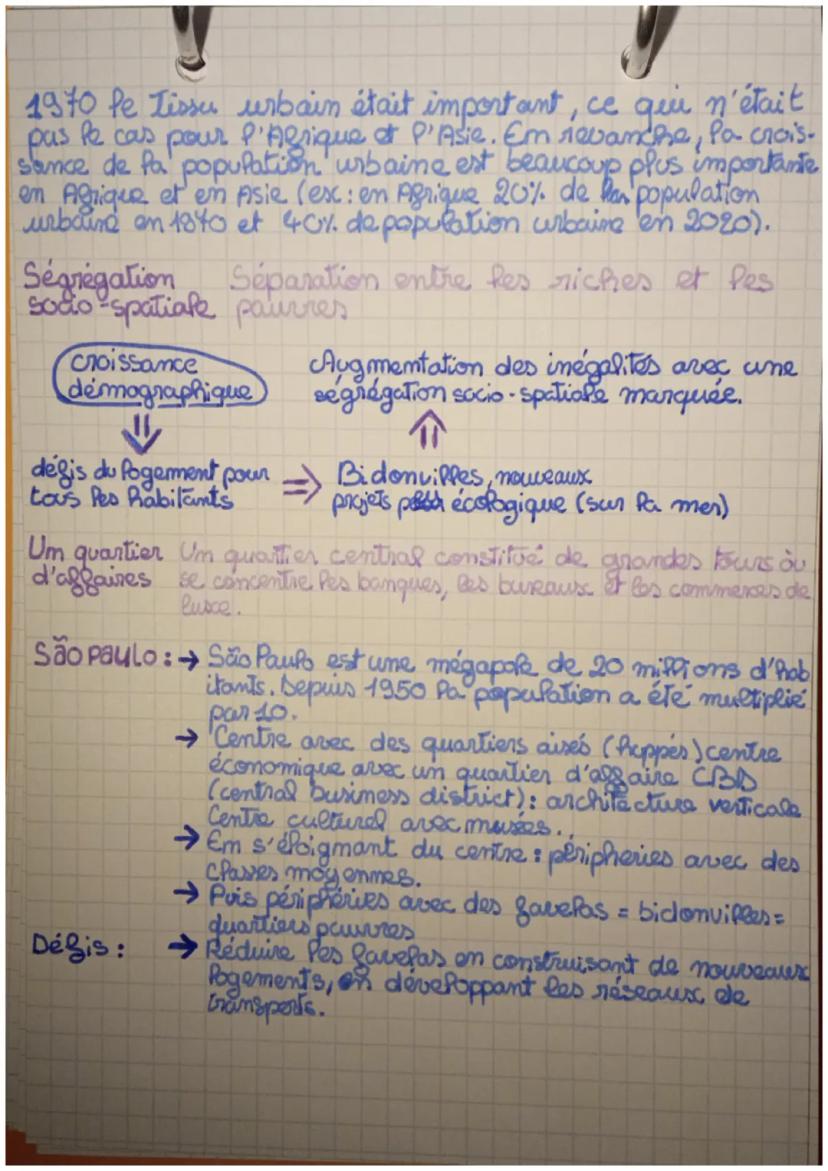 1970 le Tissu urbain était important, ce qui n'était
pas le cas pour l'Afrique et l'Asie. En revanche, la crois-
sance de la population urbaine est beaucoup plus importante
en Afrique et en Asie (ex: en Afrique 20% de la population
urbaine en 1870 et 40% de population urbaine en 2020).
Ségrégation Séparation entre les riches et les
socio-spatiale pauvres
croissance
démographique
Augmentation des inégalités avec une
ségrégation socio-spatiale marquée.
défis du logement pour
tous les habitants
Bidonvilles, nouveaux
projets écologique (sur la mer)
Un quartier Un quartier central constitué de grandes tours où
d'affaires se concentre les banques, les bureaux et les commerces de
luxe.
São paulo : → São Paulo est une mégapole de 20 millions d'hab
itants. Depuis 1950 la population a été multiplié
par 10.
→ Centre avec des quartiers aisés (huppés) centre
économique avec un quartier d'affaire CBD
(central business district) : architecture verticale
Centre culturel avec musées.
→ En s'éloignant du centre : péripheries avec des
classes moyennes.
→ Puis périphéries avec des favelas = bidonvilles =
quartiers pauvres
Défis : → Réduire les favelas en construisant de nouveaux
logements, en développant les réseaux de
transports.